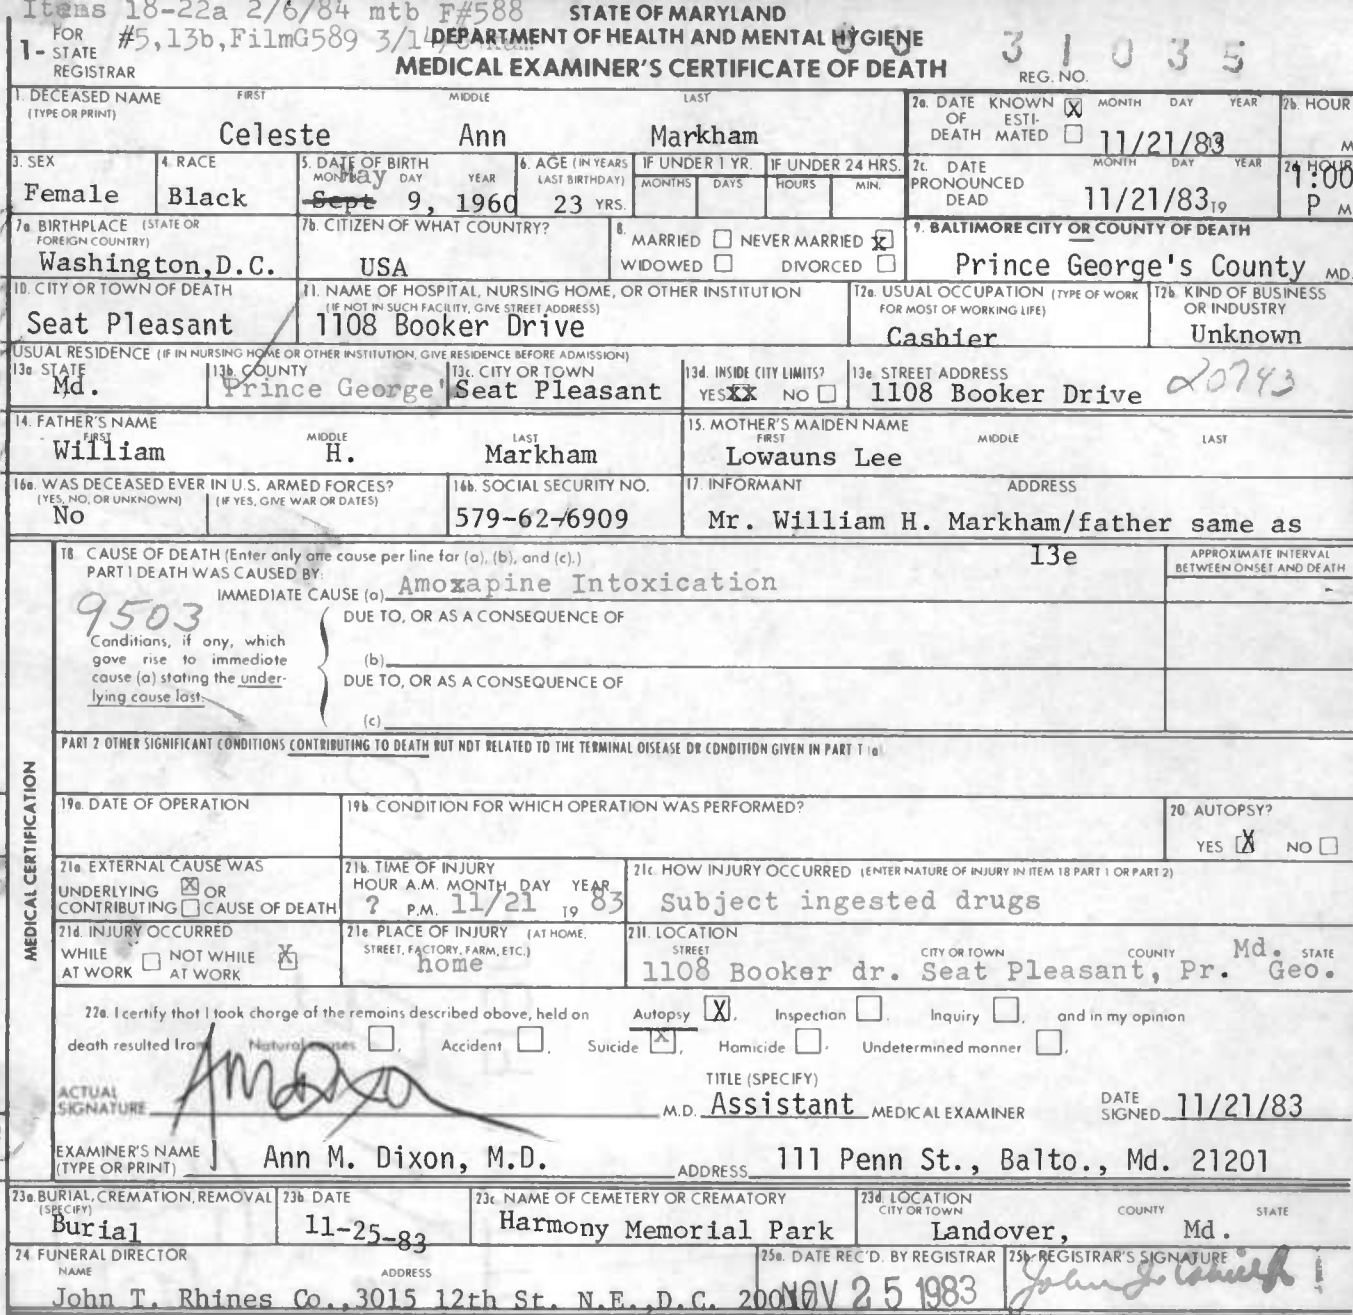 Items 18-22a 2/6/84 mtb F#588
#5,13b,FilmG589 3/14/
STATE OF MARYLAND
1- FOR STATE REGISTRAR
DEPARTMENT OF HEALTH AND MENTAL HYGIENE
MEDICAL EXAMINER'S CERTIFICATE OF DEATH
REG. NO. 31035
1. DECEASED NAME (TYPE OR PRINT) FIRST MIDDLE LAST
Celeste Ann Markham
2a. DATE OF DEATH KNOWN X ESTIMATED MONTH DAY YEAR
11/21/83
2b. HOUR M
3. SEX
Female
4. RACE
Black
5. DATE OF BIRTH MONTH DAY YEAR
May
Sept 9, 1960
6. AGE (IN YEARS LAST BIRTHDAY)
23 YRS.
IF UNDER 1 YR. MONTHS DAYS
IF UNDER 24 HRS. HOURS MIN.
2c. DATE PRONOUNCED DEAD MONTH DAY YEAR
11/21/83 19
2d HOUR
1:00 P M
7a. BIRTHPLACE (STATE OR FOREIGN COUNTRY)
Washington,D.C.
7b. CITIZEN OF WHAT COUNTRY?
USA
8. MARRIED NEVER MARRIED X
WIDOWED DIVORCED
9. BALTIMORE CITY OR COUNTY OF DEATH
Prince George's County MD.
10. CITY OR TOWN OF DEATH
Seat Pleasant
11. NAME OF HOSPITAL, NURSING HOME, OR OTHER INSTITUTION
(IF NOT IN SUCH FACILITY, GIVE STREET ADDRESS)
1108 Booker Drive
12a. USUAL OCCUPATION (TYPE OF WORK FOR MOST OF WORKING LIFE)
Cashier
12b. KIND OF BUSINESS OR INDUSTRY
Unknown
USUAL RESIDENCE (IF IN NURSING HOME OR OTHER INSTITUTION, GIVE RESIDENCE BEFORE ADMISSION)
13a. STATE
Md.
13b. COUNTY
Prince George'
13c. CITY OR TOWN
Seat Pleasant
13d. INSIDE CITY LIMITS?
YES XX NO
13e STREET ADDRESS
1108 Booker Drive 20743
14. FATHER'S NAME FIRST MIDDLE LAST
William H. Markham
15. MOTHER'S MAIDEN NAME FIRST MIDDLE LAST
Lowauns Lee
16a. WAS DECEASED EVER IN U.S. ARMED FORCES?
(YES, NO, OR UNKNOWN) (IF YES, GIVE WAR OR DATES)
No
16b. SOCIAL SECURITY NO.
579-62-6909
17. INFORMANT ADDRESS
Mr. William H. Markham/father same as
13e
MEDICAL CERTIFICATION
18 CAUSE OF DEATH (Enter only one cause per line for (a), (b), and (c).)
PART I DEATH WAS CAUSED BY:
IMMEDIATE CAUSE (a) Amoxapine Intoxication
APPROXIMATE INTERVAL BETWEEN ONSET AND DEATH
-
9503
DUE TO, OR AS A CONSEQUENCE OF
Conditions, if any, which
gove rise to immediate
cause (a) stating the under-
lying cause last.
(b)
DUE TO, OR AS A CONSEQUENCE OF
(c)
PART 2 OTHER SIGNIFICANT CONDITIONS CONTRIBUTING TO DEATH BUT NOT RELATED TO THE TERMINAL DISEASE OR CONDITION GIVEN IN PART 1 (a)
19a. DATE OF OPERATION
19b CONDITION FOR WHICH OPERATION WAS PERFORMED?
20 AUTOPSY?
YES X NO
21a EXTERNAL CAUSE WAS
UNDERLYING X OR
CONTRIBUTING CAUSE OF DEATH
21b. TIME OF INJURY
HOUR A.M. MONTH DAY YEAR
? P.M. 11/21 19 83
21c. HOW INJURY OCCURRED (ENTER NATURE OF INJURY IN ITEM 18 PART 1 OR PART 2)
Subject ingested drugs
21d. INJURY OCCURRED
WHILE AT WORK NOT WHILE AT WORK X
21e PLACE OF INJURY (AT HOME, STREET, FACTORY, FARM, ETC.)
home
21f. LOCATION
STREET CITY OR TOWN COUNTY STATE
Md.
1108 Booker dr. Seat Pleasant, Pr. Geo.
22a. I certify that I took charge of the remains described above, held on Autopsy X, Inspection, Inquiry, and in my opinion
death resulted from Natural causes, Accident, Suicide X, Homicide, Undetermined manner.
ACTUAL SIGNATURE
TITLE (SPECIFY)
M.D. Assistant MEDICAL EXAMINER
DATE SIGNED 11/21/83
EXAMINER'S NAME (TYPE OR PRINT) Ann M. Dixon, M.D.
ADDRESS 111 Penn St., Balto., Md. 21201
23a. BURIAL, CREMATION, REMOVAL (SPECIFY)
Burial
23b DATE
11-25-83
23c NAME OF CEMETERY OR CREMATORY
Harmony Memorial Park
23d. LOCATION CITY OR TOWN COUNTY STATE
Landover, Md.
24 FUNERAL DIRECTOR
NAME ADDRESS
John T. Rhines Co.,3015 12th St. N.E.,D.C.
25a. DATE REC'D. BY REGISTRAR
NOV 25 1983
25b. REGISTRAR'S SIGNATURE